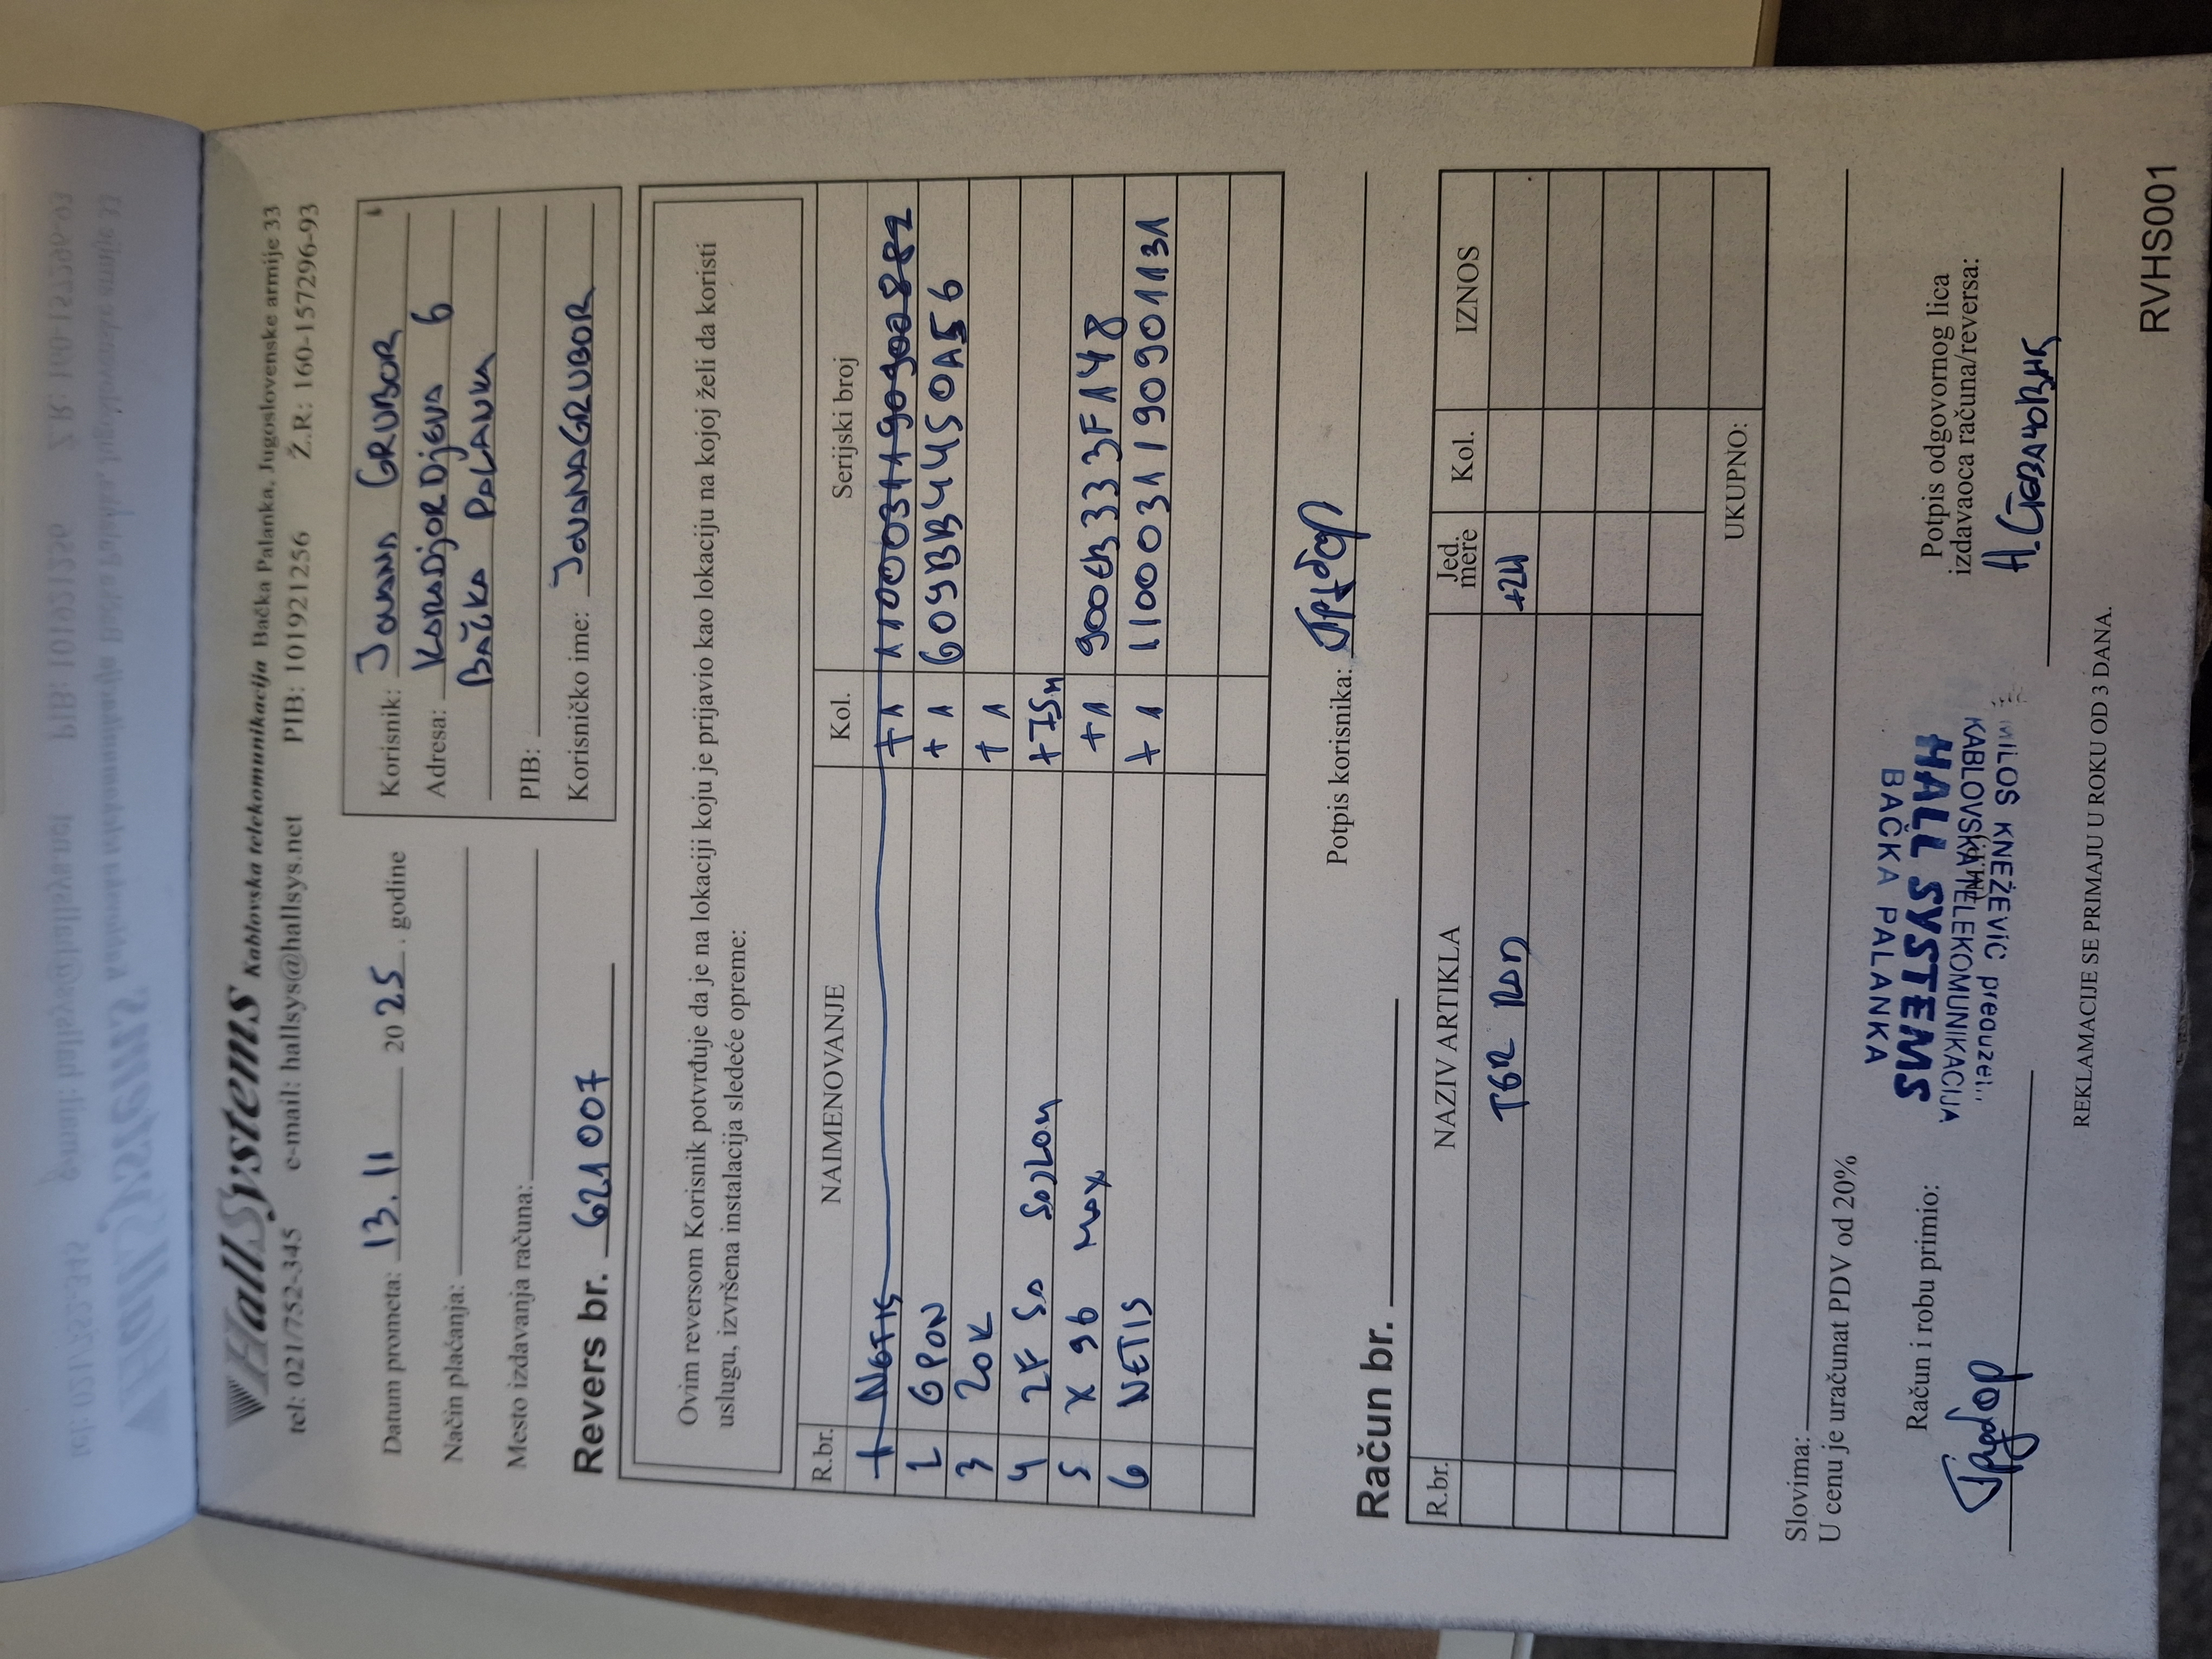 HallSystems Kablovska telekomunikacija Bačka Palanka, Jugoslovenske armije 33
tel: 021/752-345 e-mail: hallsys@hallsys.net PIB: 101921256 Ž.R: 160-157296-93
Datum prometa: 13.11 2025. godine
Način plaćanja:
Mesto izdavanja računa:
Revers br. 621007
Korisnik: JOVANA GRUBOR
Adresa: KARADJORDJEVA 6
BAČKA PALANKA
PIB:
Korisničko ime: JOVANAGRUBOR
Ovim reversom Korisnik potvrđuje da je na lokaciji koju je prijavio kao lokaciju na kojoj želi da koristi
uslugu, izvršena instalacija sledeće opreme:
R.br. NAIMENOVANJE Kol. Serijski broj
1 NETIS +1
2 GPON +1 609BB4450A56
3 20K +1
4 2F SA +75m
5 X96 MAX +1 900EB333F148
6 NETIS +1 1100031190901131
Potpis korisnika:
Račun br.
R.br. NAZIV ARTIKLA Jed. mere Kol. IZNOS
+24
UKUPNO:
Slovima:
U cenu je uračunat PDV od 20%
Račun i robu primio:
MILOŠ KNEŽEVIĆ preduzet..
KABLOVSKA TELEKOMUNIKACIJA
HALL SYSTEMS
BAČKA PALANKA
Potpis odgovornog lica
izdavaoca računa/reversa:
REKLAMACIJE SE PRIMAJU U ROKU OD 3 DANA.
RVHS001